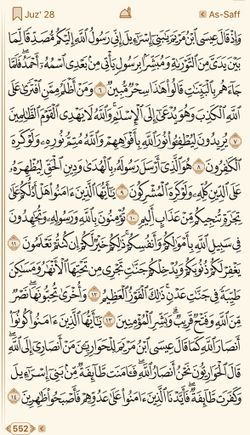 Juz' 28
As-Saff
وَإِذْ قَالَ عِيسَى ابْنُ مَرْيَمَ يَٰبَنِىٓ إِسْرَٰٓءِيلَ إِنِّى رَسُولُ ٱللَّهِ إِلَيْكُم مُّصَدِّقًا لِّمَا
بَيْنَ يَدَىَّ مِنَ ٱلتَّوْرَىٰةِ وَمُبَشِّرًۢا بِرَسُولٍ يَأْتِى مِنۢ بَعْدِى ٱسْمُهُۥٓ أَحْمَدُ فَلَمَّا
جَآءَهُم بِٱلْبَيِّنَٰتِ قَالُوا۟ هَٰذَا سِحْرٌ مُّبِينٌ ٦ وَمَنْ أَظْلَمُ مِمَّنِ ٱفْتَرَىٰ عَلَى
ٱللَّهِ ٱلْكَذِبَ وَهُوَ يُدْعَىٰٓ إِلَى ٱلْإِسْلَٰمِ وَٱللَّهُ لَا يَهْدِى ٱلْقَوْمَ ٱلظَّٰلِمِينَ
٧ يُرِيدُونَ لِيُطْفِـُٔوا۟ نُورَ ٱللَّهِ بِأَفْوَٰهِهِمْ وَٱللَّهُ مُتِمُّ نُورِهِۦ وَلَوْ كَرِهَ
ٱلْكَٰفِرُونَ ٨ هُوَ ٱلَّذِىٓ أَرْسَلَ رَسُولَهُۥ بِٱلْهُدَىٰ وَدِينِ ٱلْحَقِّ لِيُظْهِرَهُۥ
عَلَى ٱلدِّينِ كُلِّهِۦ وَلَوْ كَرِهَ ٱلْمُشْرِكُونَ ٩ يَٰٓأَيُّهَا ٱلَّذِينَ ءَامَنُوا۟ هَلْ أَدُلُّكُمْ عَلَىٰ
تِجَٰرَةٍ تُنجِيكُم مِّنْ عَذَابٍ أَلِيمٍ ١٠ تُؤْمِنُونَ بِٱللَّهِ وَرَسُولِهِۦ وَتُجَٰهِدُونَ
فِى سَبِيلِ ٱللَّهِ بِأَمْوَٰلِكُمْ وَأَنفُسِكُمْ ذَٰلِكُمْ خَيْرٌ لَّكُمْ إِن كُنتُمْ تَعْلَمُونَ ١١
يَغْفِرْ لَكُمْ ذُنُوبَكُمْ وَيُدْخِلْكُمْ جَنَّٰتٍ تَجْرِى مِن تَحْتِهَا ٱلْأَنْهَٰرُ وَمَسَٰكِنَ
طَيِّبَةً فِى جَنَّٰتِ عَدْنٍ ذَٰلِكَ ٱلْفَوْزُ ٱلْعَظِيمُ ١٢ وَأُخْرَىٰ تُحِبُّونَهَا نَصْرٌ
مِّنَ ٱللَّهِ وَفَتْحٌ قَرِيبٌ وَبَشِّرِ ٱلْمُؤْمِنِينَ ١٣ يَٰٓأَيُّهَا ٱلَّذِينَ ءَامَنُوا۟ كُونُوٓا۟
أَنصَارَ ٱللَّهِ كَمَا قَالَ عِيسَى ٱبْنُ مَرْيَمَ لِلْحَوَارِيِّـۧنَ مَنْ أَنصَارِىٓ إِلَى ٱللَّهِ
قَالَ ٱلْحَوَارِيُّونَ نَحْنُ أَنصَارُ ٱللَّهِ فَـَٔامَنَت طَّآئِفَةٌ مِّنۢ بَنِىٓ إِسْرَٰٓءِيلَ
وَكَفَرَت طَّآئِفَةٌ فَأَيَّدْنَا ٱلَّذِينَ ءَامَنُوا۟ عَلَىٰ عَدُوِّهِمْ فَأَصْبَحُوا۟ ظَٰهِرِينَ ١٤
552